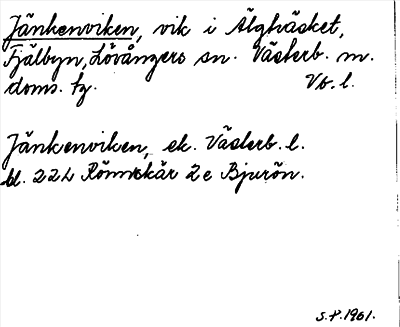 Jänkenviken, vik i Älgträsket,
Fjälbyn, Lövångers sn. Västerb. m.
doms. tg. Vb. l.
Jänkenviken, ek. Västerb. l.
bl. 22L Rönnskär 2e Bjurön.
S.P. 1961.